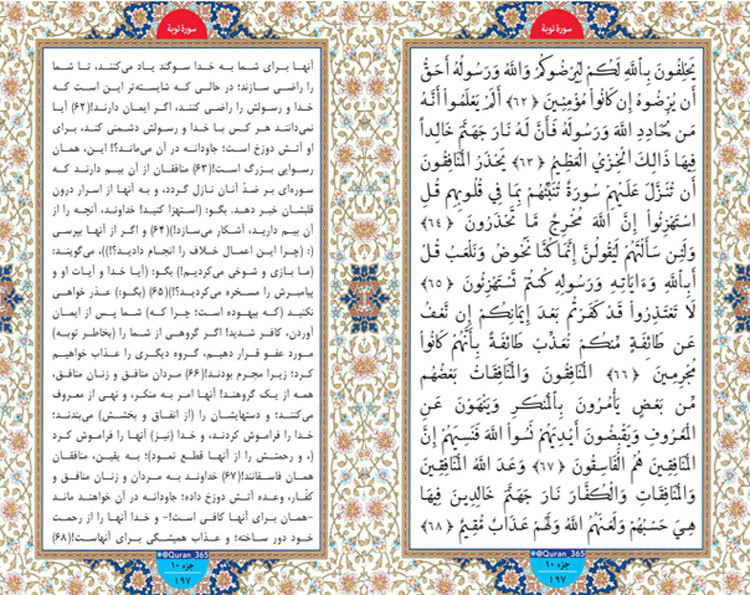 سورة توبة
يَحْلِفُونَ بِاللَّهِ لَكُمْ لِيُرْضُوكُمْ وَاللَّهُ وَرَسُولُهُ أَحَقُّ
أَن يُرْضُوهُ إِن كَانُوا مُؤْمِنِينَ ﴿۶۲﴾ أَلَمْ يَعْلَمُوا أَنَّهُ
مَن يُحَادِدِ اللَّهَ وَرَسُولَهُ فَأَنَّ لَهُ نَارَ جَهَنَّمَ خَالِداً
فِيهَا ذَالِكَ الْخِزْيُ الْعَظِيمُ ﴿۶۳﴾ يَحْذَرُ الْمُنَافِقُونَ
أَن تُنَزَّلَ عَلَيْهِمْ سُورَةٌ تُنَبِّئُهُم بِمَا فِي قُلُوبِهِم قُلِ
اسْتَهْزِئُوا إِنَّ اللَّهَ مُخْرِجٌ مَّا تَحْذَرُونَ ﴿۶۴﴾
وَلَئِن سَأَلْتَهُمْ لَيَقُولُنَّ إِنَّمَا كُنَّا نَخُوضُ وَنَلْعَبُ قُلْ
أَبِاللَّهِ وَءَايَاتِهِ وَرَسُولِهِ كُنتُمْ تَسْتَهْزِئُونَ ﴿۶۵﴾
لَا تَعْتَذِرُوا قَدْ كَفَرْتُم بَعْدَ إِيمَانِكُمْ إِن نَّعْفُ
عَن طَائِفَةٍ مِّنكُمْ نُعَذِّبْ طَائِفَةً بِأَنَّهُمْ كَانُوا
مُجْرِمِينَ ﴿۶۶﴾ الْمُنَافِقُونَ وَالْمُنَافِقَاتُ بَعْضُهُم
مِّن بَعْضٍ يَأْمُرُونَ بِالْمُنكَرِ وَيَنْهَوْنَ عَنِ
الْمَعْرُوفِ وَيَقْبِضُونَ أَيْدِيَهُمْ نَسُوا اللَّهَ فَنَسِيَهُمْ إِنَّ
الْمُنَافِقِينَ هُمُ الْفَاسِقُونَ ﴿۶۷﴾ وَعَدَ اللَّهُ الْمُنَافِقِينَ
وَالْمُنَافِقَاتِ وَالْكُفَّارَ نَارَ جَهَنَّمَ خَالِدِينَ فِيهَا
هِيَ حَسْبُهُمْ وَلَعَنَهُمُ اللَّهُ وَلَهُمْ عَذَابٌ مُّقِيمٌ ﴿۶۸﴾
@Quran_365
جزء ۱۰
۱۹۷
سورة توبة
آنها برای شما به خدا سوگند یاد می‌کنند، تا شما
را راضی سازند؛ در حالی که شایسته‌تر این است که
خدا و رسولش را راضی کنند، اگر ایمان دارند!(۶۲) آیا
نمی‌دانند هر کس با خدا و رسولش دشمنی کند، برای
او آتش دوزخ است؛ جاودانه در آن می‌ماند؟! این، همان
رسوایی بزرگ است!(۶۳) منافقان از آن بیم دارند که
سوره‌ای بر ضدّ آنان نازل گردد، و به آنها از اسرار درون
قلبشان خبر دهد. بگو: (استهزا کنید! خداوند، آنچه را از
آن بیم دارید، آشکار می‌سازد!)(۶۴) و اگر از آنها بپرسی
(: (چرا این اعمال خلاف را انجام دادید؟!))، می‌گویند:
(ما بازی و شوخی می‌کردیم!) بگو: (آیا خدا و آیات او و
پیامبرش را مسخره می‌کردید؟!)(۶۵) (بگو:) عذر خواهی
نکنید (که بیهوده است؛ چرا که) شما پس از ایمان
آوردن، کافر شدید! اگر گروهی از شما را (بخاطر توبه)
مورد عفو قرار دهیم، گروه دیگری را عذاب خواهیم
کرد؛ زیرا مجرم بودند!(۶۶) مردان منافق و زنان منافق،
همه از یک گروهند! آنها امر به منکر، و نهی از معروف
می‌کنند؛ و دستهایشان را (از انفاق و بخشش) می‌بندند؛
خدا را فراموش کردند، و خدا (نیز) آنها را فراموش کرد
(، و رحمتش را از آنها قطع نمود)؛ به یقین، منافقان
همان فاسقانند!(۶۷) خداوند به مردان و زنان منافق و
کفّار، وعده آتش دوزخ داده؛ جاودانه در آن خواهند ماند
-همان برای آنها کافی است!- و خدا آنها را از رحمت
خود دور ساخته؛ و عذاب همیشگی برای آنهاست!(۶۸)
@Quran_365
جزء ۱۰
۱۹۷